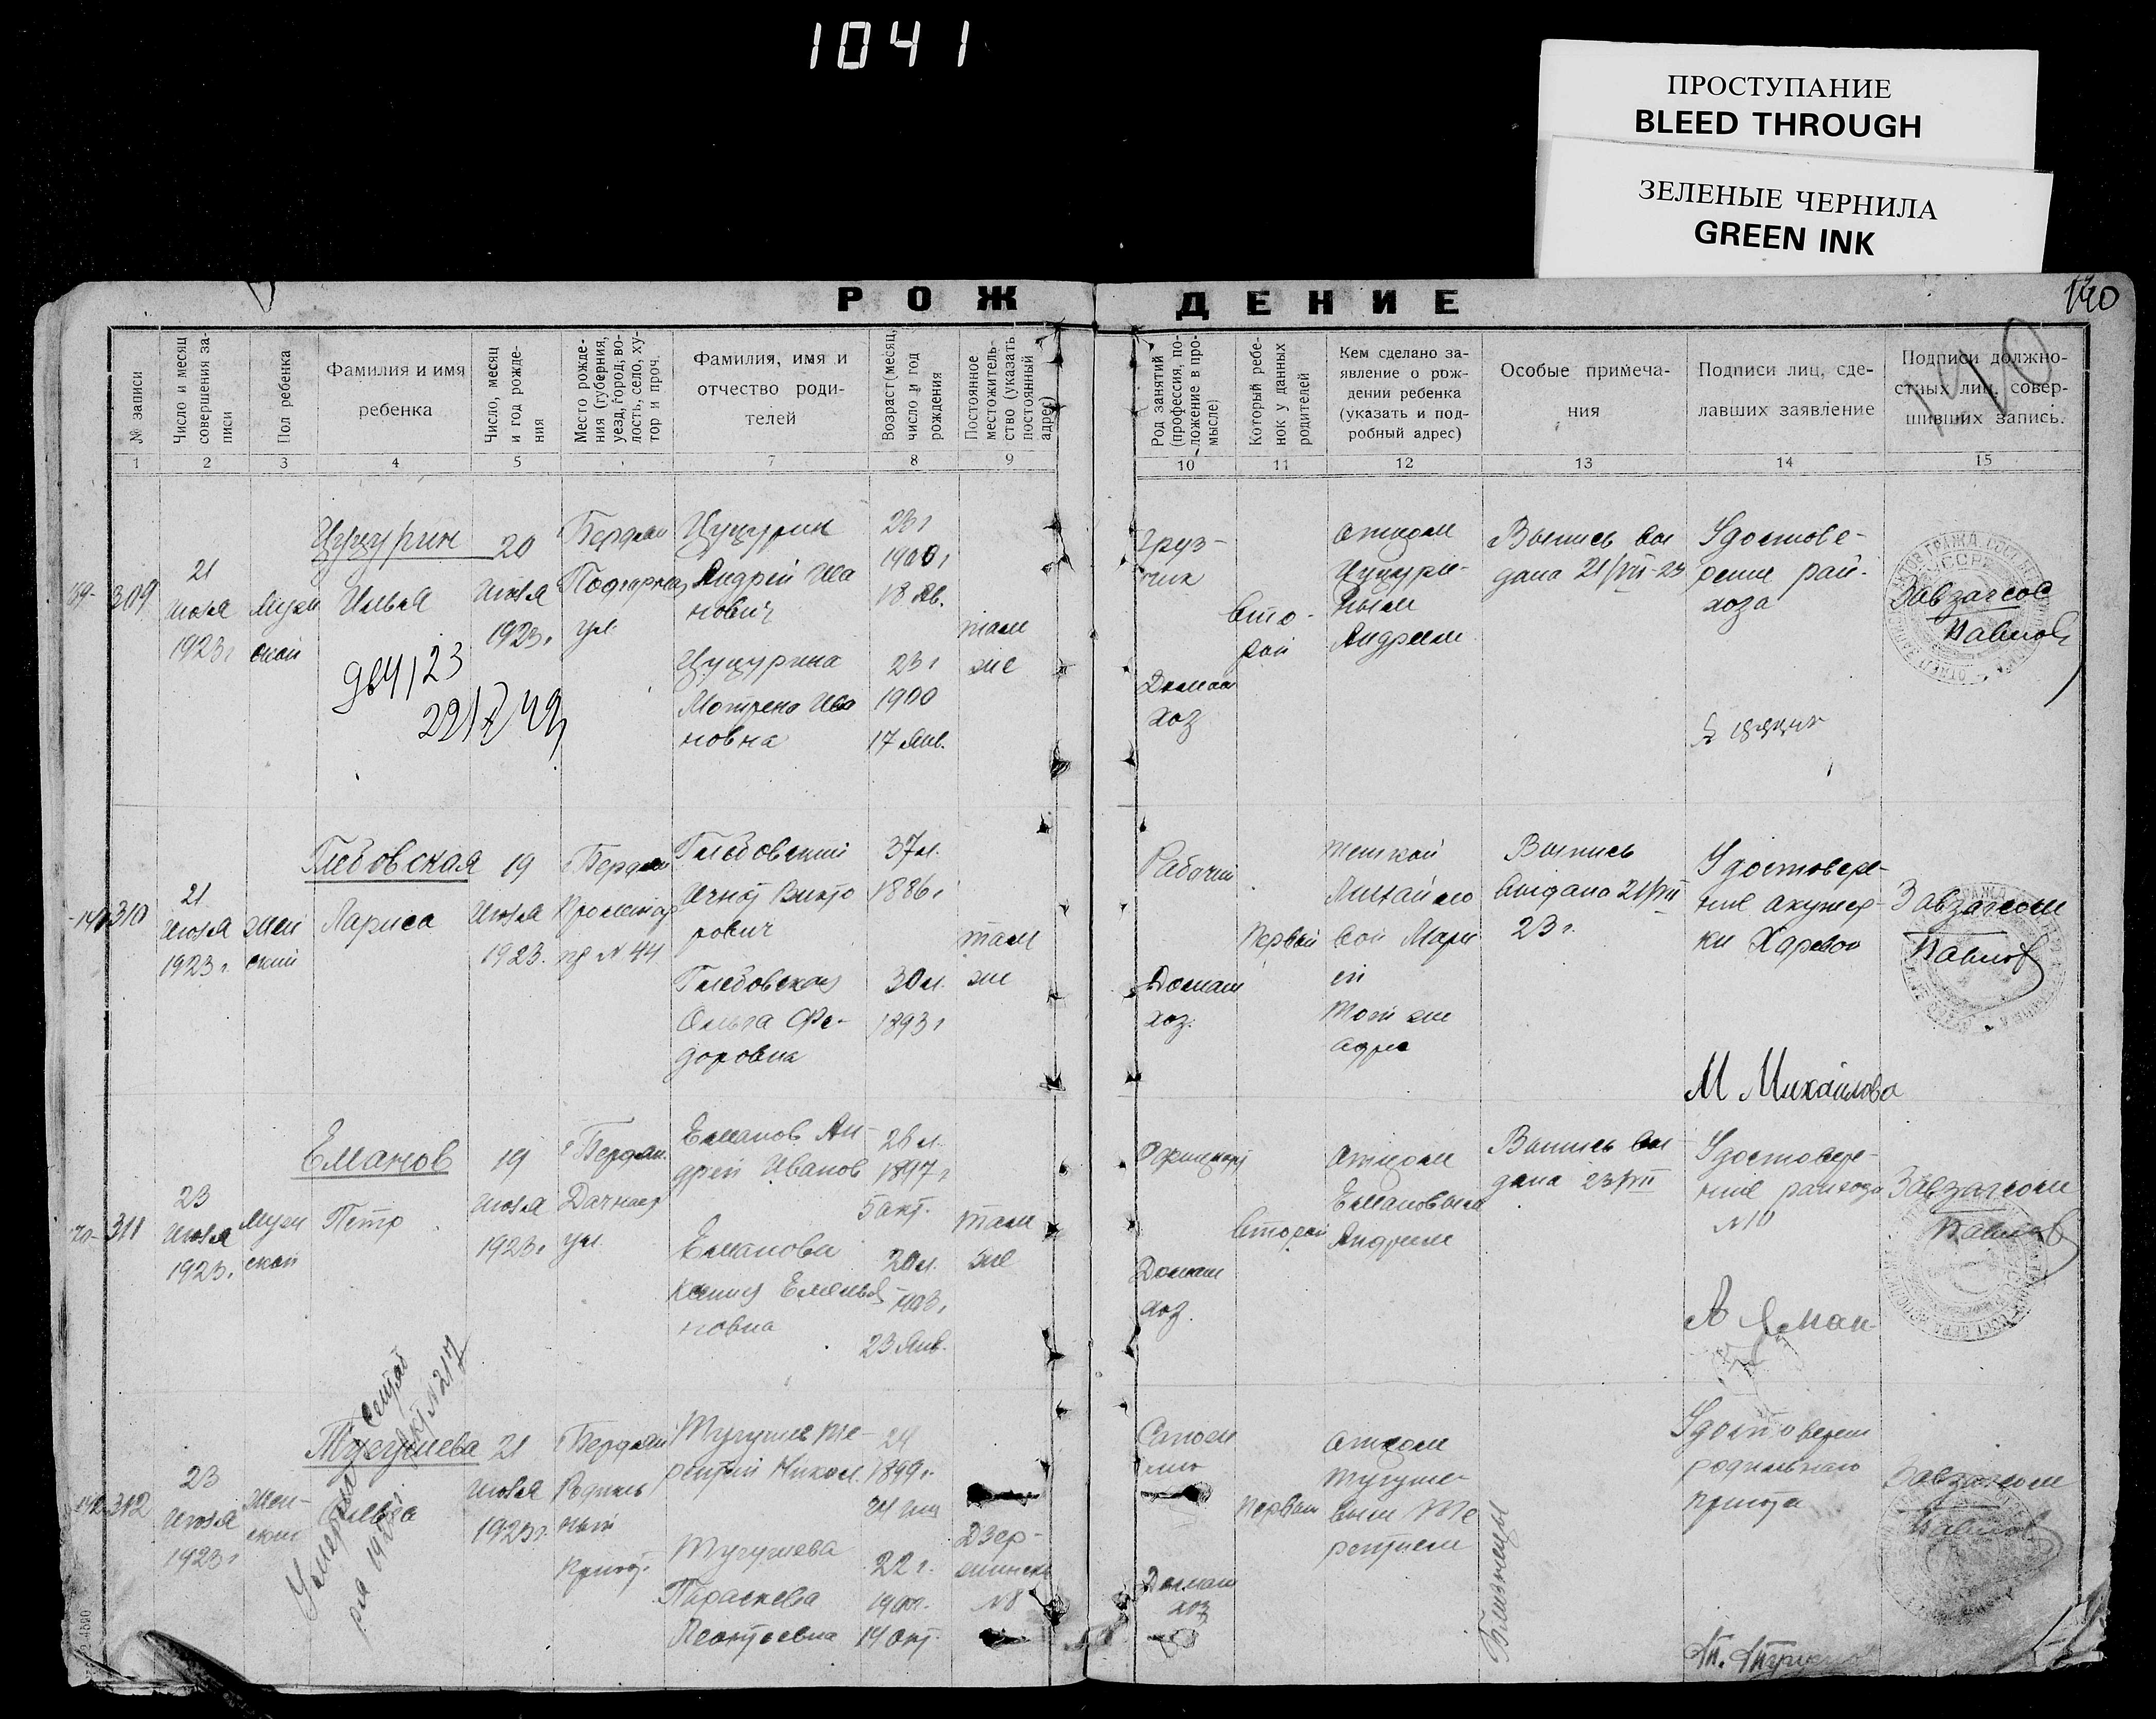 1041
ПРОСТУПАНИЕ
BLEED THROUGH
ЗЕЛЕНЫЕ ЧЕРНИЛА
GREEN INK
РОЖДЕНИЕ
140
140
№ записи
Число и месяц совершения записи
Пол ребенка
Фамилия и имя
ребенка
Число, месяц
и год рожде-
ния
Место рожде-
ния (губерния,
уезд, город, во-
лость, село, ху-
тор и проч.
Фамилия, имя и
отчество роди-
телей
Возраст (месяц,
число и год
рождения
Постоянное
местожитель-
ство (указать
постоянный
адрес)
Род занятий
(профессия, по-
ложение в про-
мысле)
Который ребе-
нок у данных
родителей
Кем сделано за-
явление о рож-
дении ребенка
(указать и под-
робный адрес)
Особые примеча-
ния
Подписи лиц, сде-
лавших заявление
Подписи должно-
стных лиц, совер-
шивших запись.
1 2 3 4 5 7 8 9 10 11 12 13 14 15
309
21
июля
1923 г
Муж
ской
Цуцурин
Илья
20
июля
1923 г
Бердян
Подгорная
ул.
Цуцурин
Андрей Ива
нович
1900 г
Цуцурина
Мотрена Ива
новна
23 г
1900
17 Янв.
там
же
Груз-
чик
Домаш
хоз
Вто-
рой
отцом
Цуцури-
ным
Андреем
Выпись вы
дана 21/VII-23
Удостове-
рение рай-
хоза
Завзагсом
Павлов
310
21
июля
1923 г.
жен
ский
Глебовская
Лариса
19
июля
1923.
Бердян
Пролетар
№ 44
Глебовский
Викто
рович
37 л.
1886 г
Глебовская
Ольга Фе-
доровна
30 л.
1893 г
там
же
Рабочий
Домаш
хоз.
Первый
теткой
Михайло
вой Мари
ей
Той же
адрес
Выпись
выдана 21/VII
23 г.
Удостовере-
ние акушер-
ки
Завзагсом
Павлов
М Михайлова
311
23
июля
1923.
Муж
ской
Еманов
Петр
19
июля
1923 г
Бердян.
Дачная
ул.
Еманов Ан-
дрей Иванов
26 л.
1897 г
5 окт.
Еманова
Емелья
новна
20 л.
1903 г
23 Янв.
там
же
Домаш
хоз.
Второй
отцом
Емановым
Андреем
Выпись вы
дана 23/VII
Удостовере-
ние райхоза
№ 10
Завзагсом
Павлов
312
23
июля
1923 г
Жен-
ский
Тугушева
Ольга
Умерла
№ 217
21
июля
1923 г.
Бердян
Родиль
ный
Приют.
Тугушев Те-
рентий Никол.
24
1899 г.
Тугушева
Параскева
Леонтьевна
22 г.
14 Окт.
Дзер-
жинск
№ 8
Сапож
ник
Домаш
хоз
Первый
отцом
Тугуше-
вым Те
рентием
Близнецы
Удостоверен
родильного
приюта
Завзагсом
Павлов